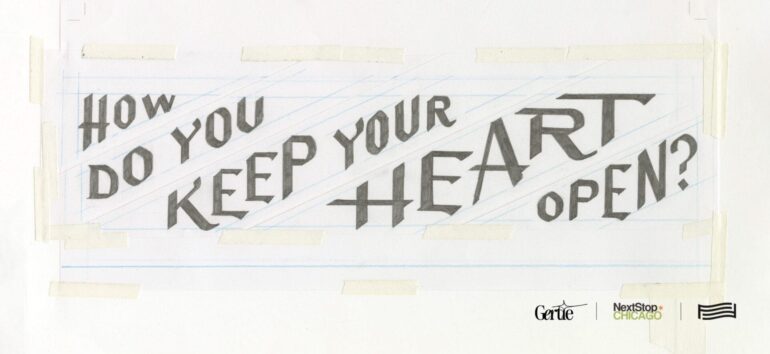 HOW
DO YOU
KEEP YOUR
HEART
OPEN?
Gertie
NextStop
CHICAGO